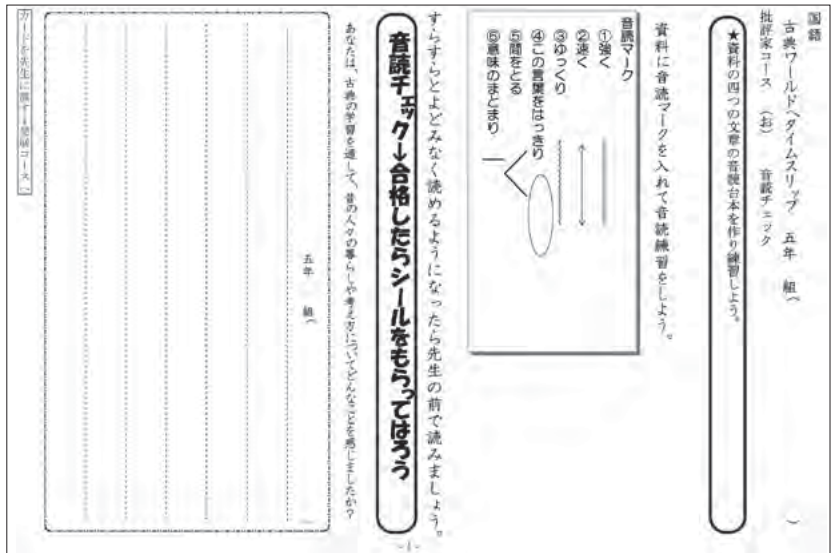 国語
古典ワールドへタイムスリップ 五年 組( )
批評家コース (お) 音読チェック
★資料の四つの文章の音読台本を作り練習しよう。
資料に音読マークを入れて音読練習をしよう。
音読マーク
①強く
②速く
③ゆっくり
④この言葉をはっきり
⑤間をとる
⑥意味のまとまり
すらすらとよどみなく読めるようになったら先生の前で読みましょう。
音読チェック→合格したらシールをもらってはろう
あなたは、古典の学習を通して、昔の人々の暮らしや考え方についてどんなことを感じましたか?
五年 組(
カードを先生に渡す→発展コースへ
-1-